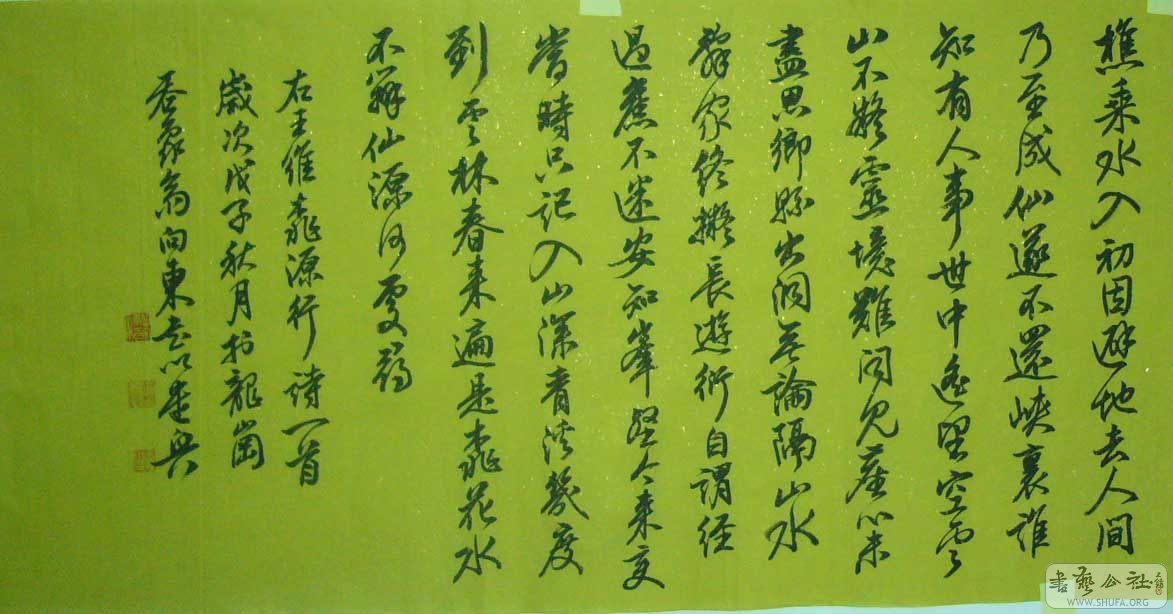 樵乘水入初因避地去人間
乃至成仙遂不還峽裏誰
知有人事世中遙望空雲
山不疑靈境難聞見塵心未
盡思鄉縣出洞無論隔山水
辭家終擬長遊衍自謂經
過舊不迷安知峯壑今來變
當時只記入山深青溪幾度
到雲林春來遍是桃花水
不辨仙源何處尋
右王維桃源行詩一首
歲次戊子秋月於龍崗
翁向東
書藝公社
WWW.SHUFA.ORG